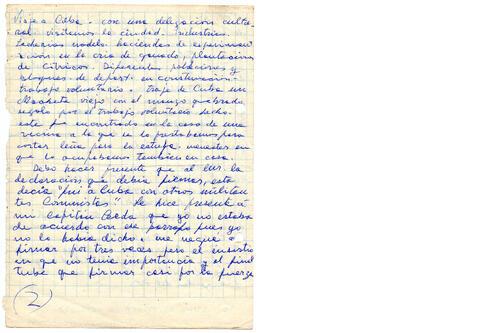 Viaje a Cuba - con una delegación cultu-
ral visitamos la ciudad. Industrias.
Lecherías modelo. haciendas de experimen
tación en la cria de ganado, plantaciones
de cítricos. Diferentes poblaciones y
bloques de depart. en construcción -
trabajo voluntario - traje de Cuba un
Machete viejo con el mango quebrado
regalo por el trabajo voluntario hecho.
este fue encontrado en la casa de una
vecina a la que se lo prestabamos para
cortar leña para la estufa. menester en
que lo ocupabamos tambien en casa.
Debo hacer presente que al leer la
declaración que debía firmar, esta
decía "fui a Cuba con otros militan
tes Comunistas" Le hice presente a
mi Capitán que yo no estaba
de acuerdo con ese parrafo pues yo
no lo había dicho y me negué a
firmar por tres veces pero el insistio
en que no tenia importancia y al final
tube que firmar casi por la fuerza
(2)